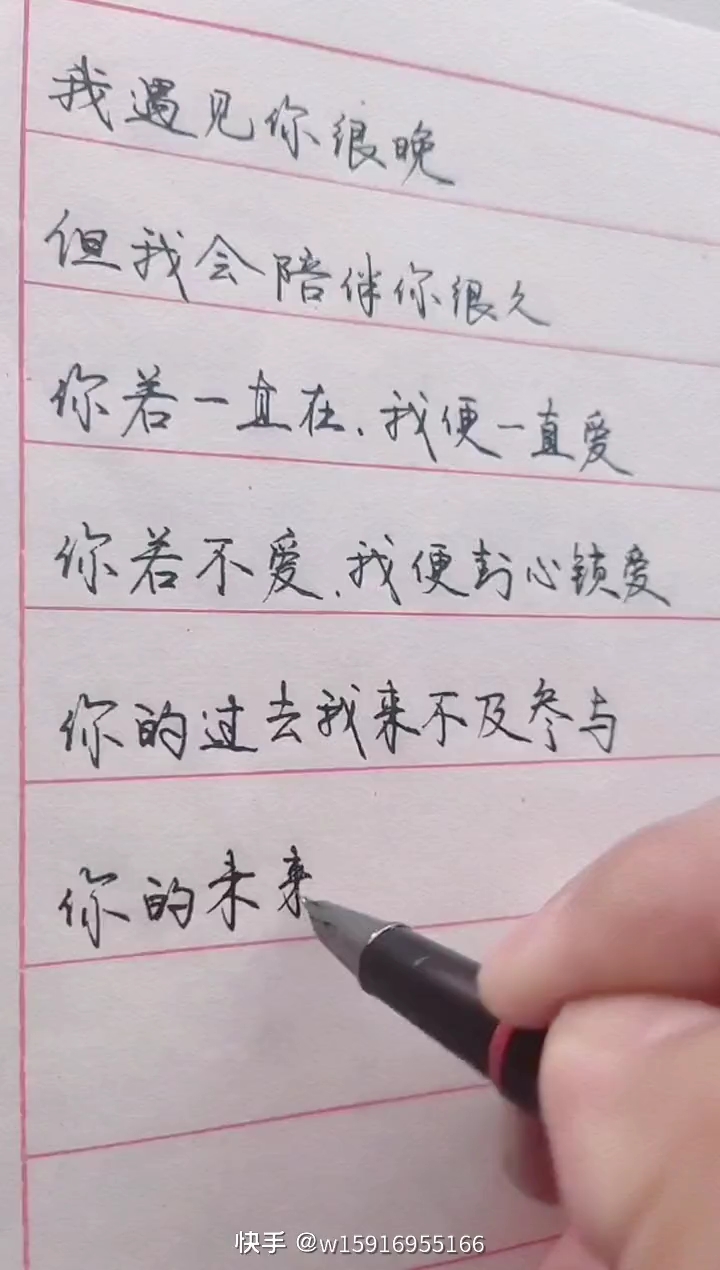 我遇见你很晚
但我会陪伴你很久
你若一直在,我便一直爱
你若不爱,我便封心锁爱
你的过去我来不及参与
你的未来
快手 @w15916955166